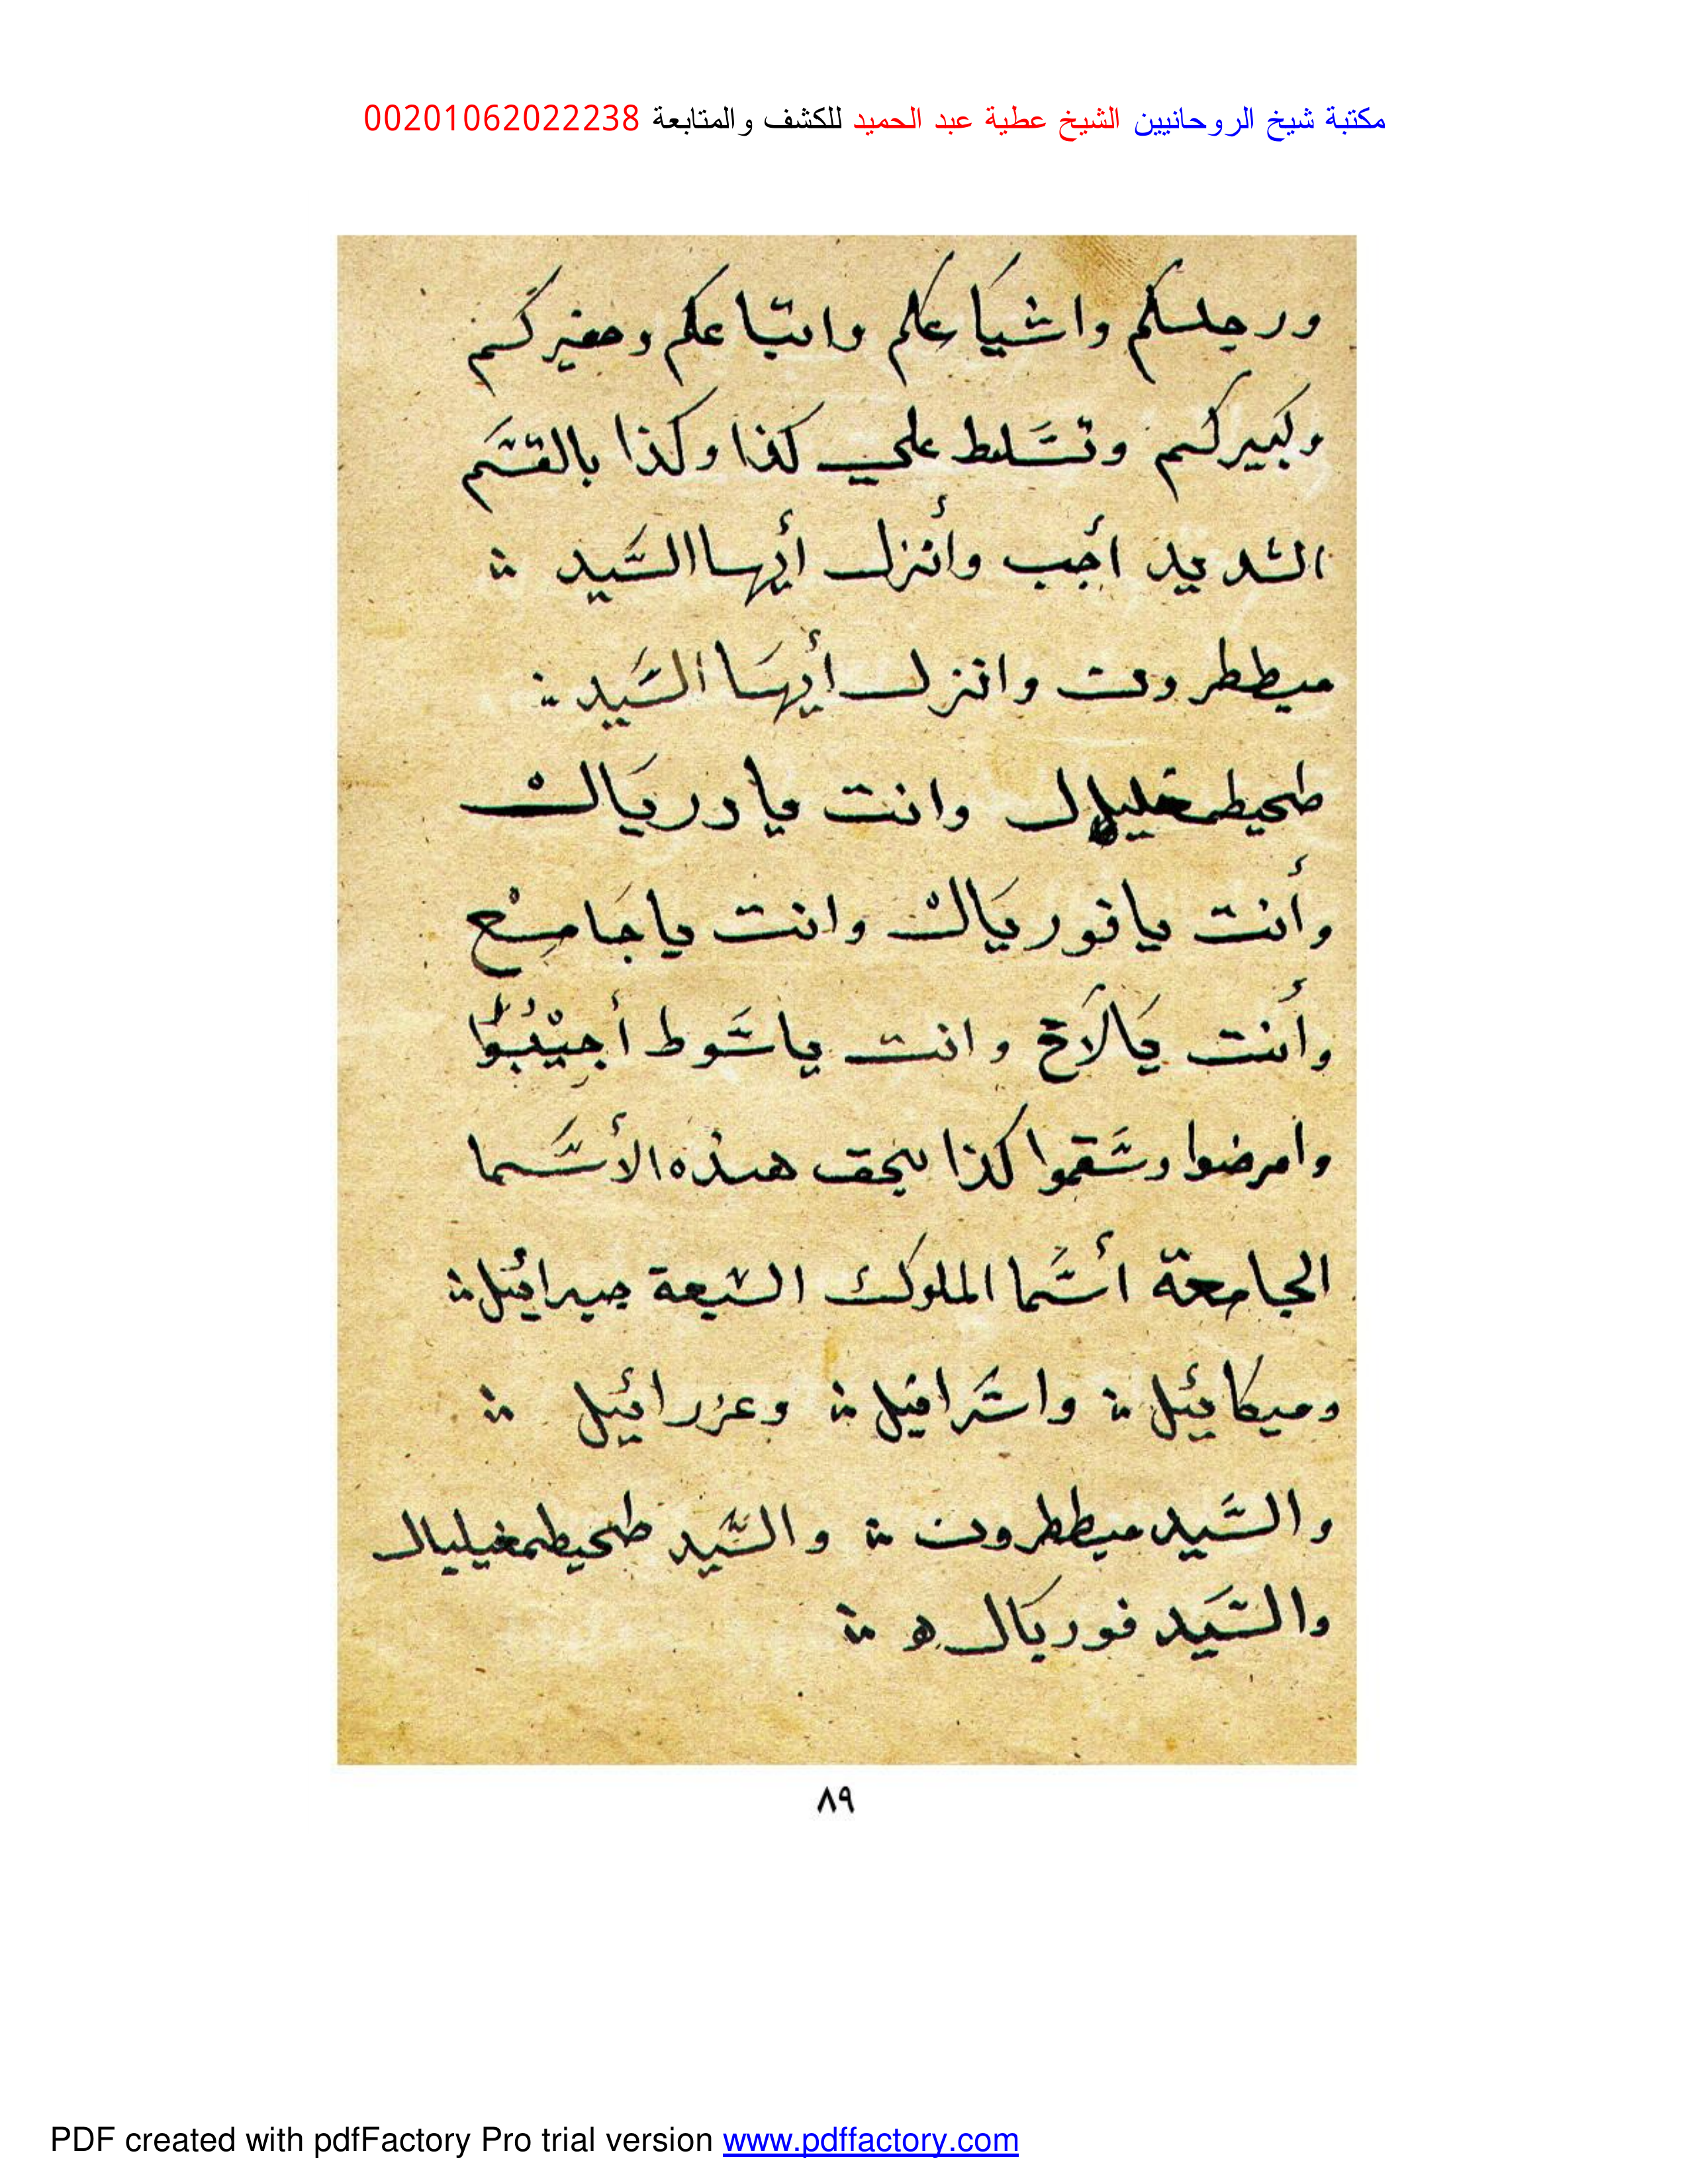 مكتبة شيخ الروحانيين الشيخ عطية عبد الحميد للكشف والمتابعة 00201062022238
ورجلكم واشياعكم واتباعكم وصغيركم
وكبيركم وتسلط علي كذا وكذا بالقسم
الشديد أجب وأنزل أيها السيد
ميططرون وانزل أيها السيد
طحيطمغليال وانت يا دريال
وأنت يا نوريال وانت يا جامع
وأنت يالاخ وانت ياشوط أجيبوا
وامرضوا وسقموا كذا بحق هذه الأسما
الجامعة أسما الملوك السبعة جبرائيل
وميكائيل واسرافيل وعزرائيل
والسيد ميططرون والسيد طحيطمغيليال
والسيد فوريال ه
٨٩
PDF created with pdfFactory Pro trial version www.pdffactory.com